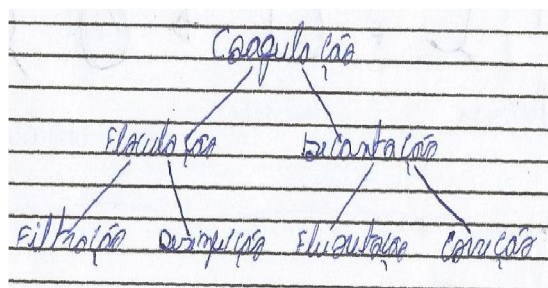 Coagulação
Floculação Decantação
Filtração Desinfecção Fluoretação Correção